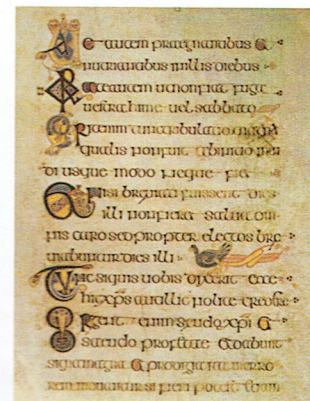 Ue autem praegnantibus et
nutrientibus in illis diebus
Orate autem ut non fiat fuga
uestra hieme uel sabbato
Erit enim tunc tribulatio magna
qualis non fuit ab initio
di usque modo neque fiet
Et nisi breuiati fuissent dies
illi non fieret salua om
nis caro sed propter electos bre
uiabuntur dies illi
Tunc si quis uobis dixerit ecce
hic xps aut illic nolite credere
Surgent enim seudo xpi et
seudo profetae et dabunt
signa magna et prodigia ita ut in erro
rem si fieri potest etiam